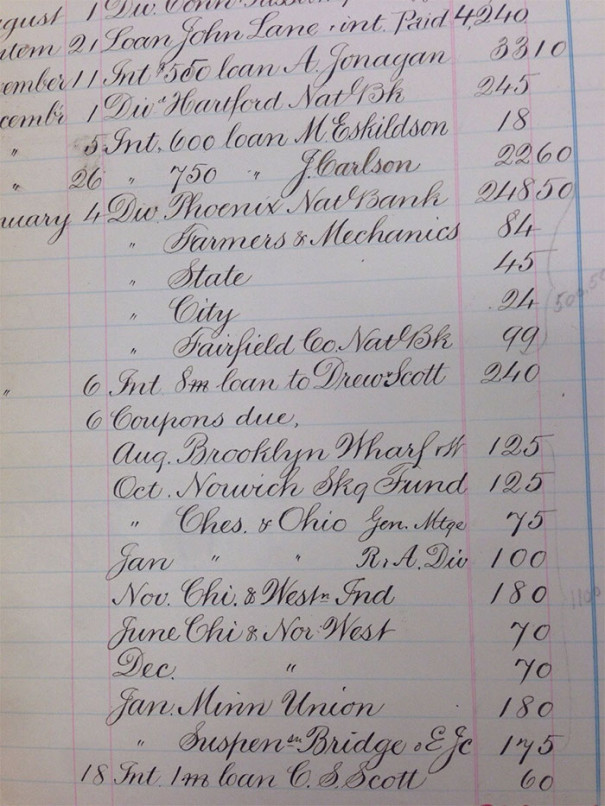 gust 1 Div. Conn.
ntem 21 Loan John Lane, int. Paid 4,240
ember 11 Int $550 loan A. Jonagan 33 10
cembr 1 Div. Hartford Natl Bk 245
" 5 Int. 600 loan M Eskildson 18
" 26 " 750 " J. Carlson 22 60
nuary 4 Div. Phoenix Natl Bank 248 50
" Farmers & Mechanics 84
" State 45
" City 24
" Fairfield Co. Natl Bk 99
" 6 Int 8m loan to Drew & Scott 240
6 Coupons due,
Aug. Brooklyn Wharf & W 125
Oct. Norwich Skg Fund 125
" Ches. & Ohio Gen. Mtge 75
Jan " " R. & A. Div 100
Nov. Chi. & Westn Ind 180
June Chi & Nor. West 70
Dec. " 70
Jan. Minn Union 180
" Suspensn Bridge & E Jc 175
18 Int. 1m loan C. S. Scott 60